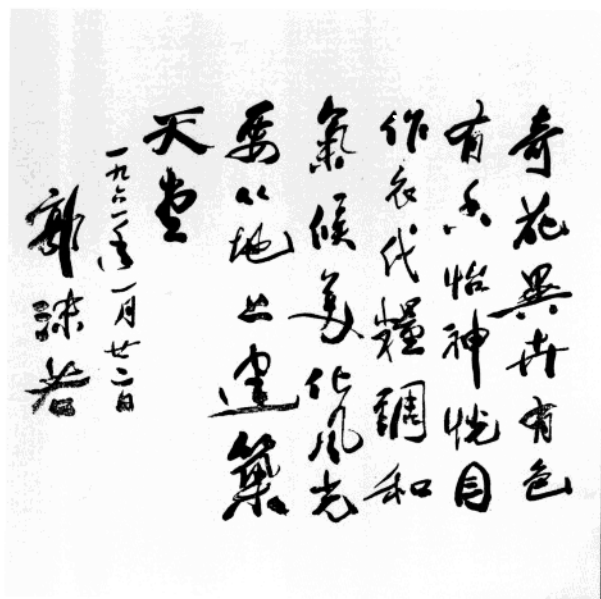 奇花異卉有色
有香怡神悦目
作衣代糧調和
氣候美化風光
要从地上建築
天堂
一九六一年一月廿二日
郭沫若